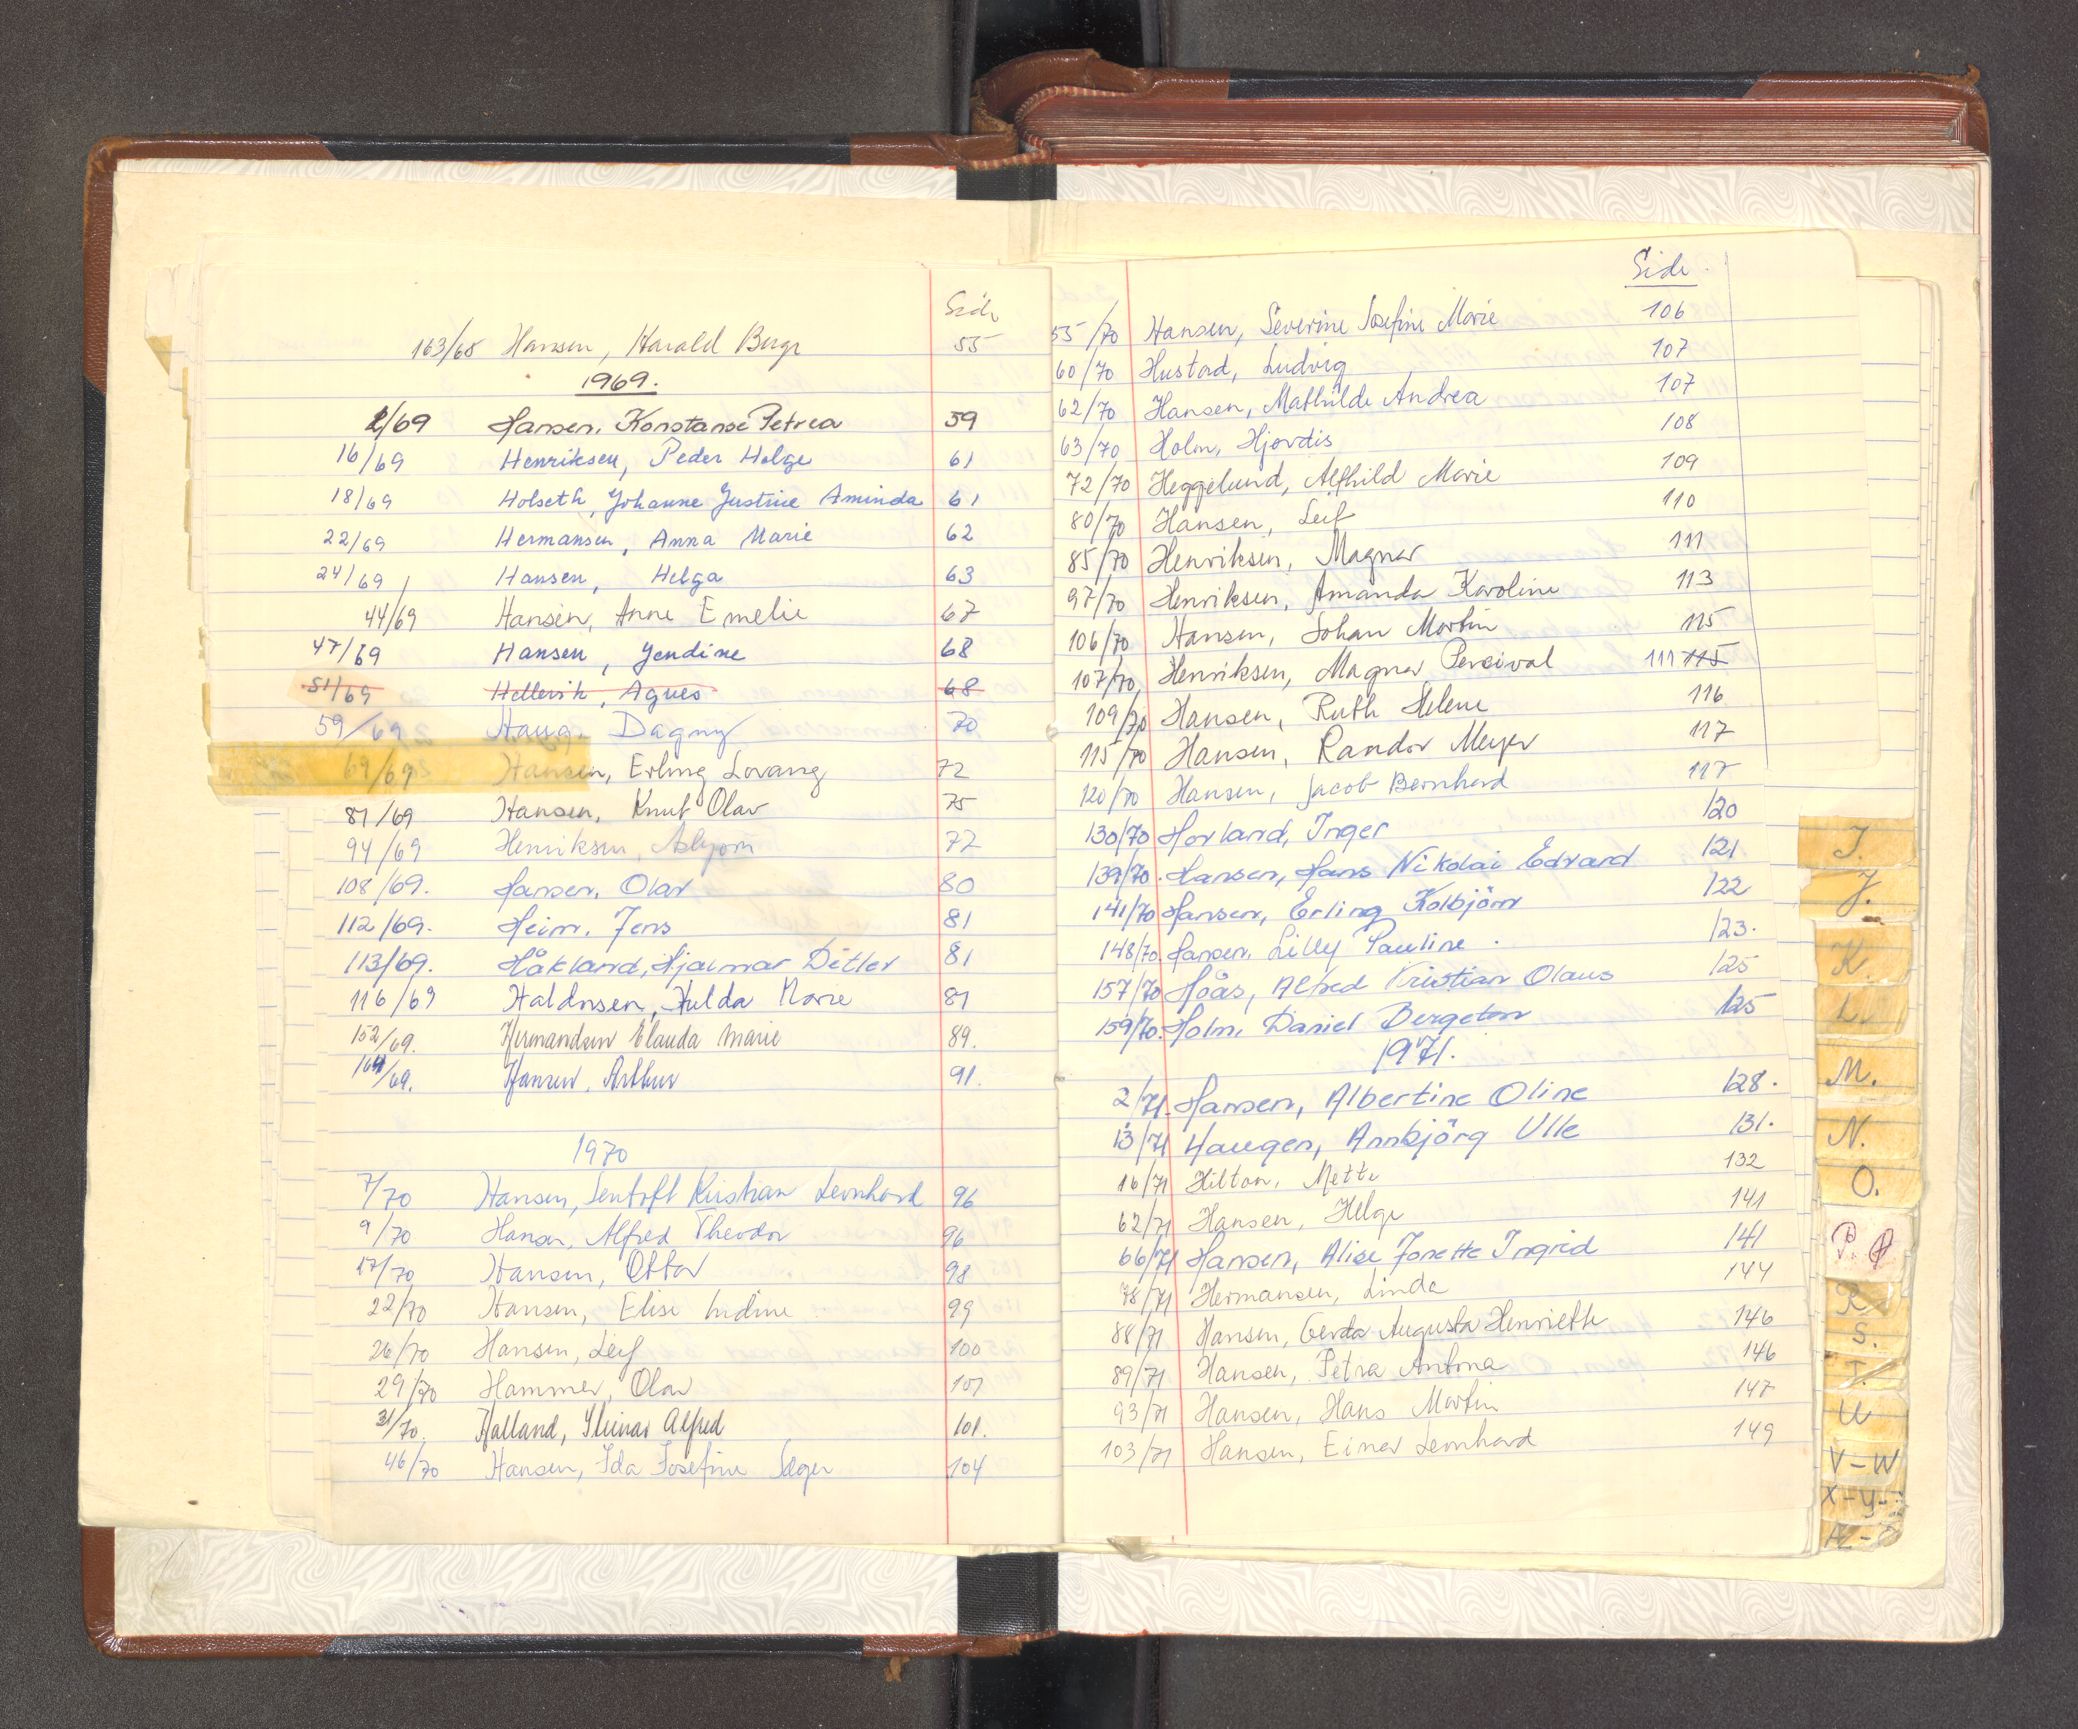 Side
163/68 Hansen, Harald Berge 55
1969.
2/69 Hansen, Konstanse Petrea 59
16/69 Henriksen, Peder Helge 61
18/69 Holseth, Johanne Justine Aminda 61
22/69 Hermansen, Anna Marie 62
24/69 Hansen, Helga 63
44/69 Hansen, Anne Emelie 67
47/69 Hansen, Jendine 68
51/69 Hellevik, Agnes 68
59/69 Haug, Dagny 70
69/69 Hansen, Erling Lorang 72
81/69 Hansen, Knut Olav 75
94/69 Henriksen, Asbjørn 77
108/69. Hansen, Olav 80
112/69. Heim, Jens 81
113/69. Håkland, Hjalmar Ditlev 81
116/69 Haldnsen, Hulda Marie 81
152/69. Hermandsen Clauda Marie 89.
164/69. Hansen, Arthur 91.
1970
7/70 Hansen, Kristian Leonhard 96
9/70 Hansen, Alfred Theodor 96
17/70 Hansen, Ottar 98
22/70 Hansen, Elise Indine 99
26/70 Hansen, Leif 100
29/70 Hammer, Olav 101
31/70. Halland, Steinar Alfred 101.
46/70 Hansen, Ida Josefine Sæger 104
Side.
55/70 Hansen, Severine Josefine Marie 106
60/70 Hustad, Ludvig 107
62/70 Hansen, Mathilde Andrea 107
63/70 Holm, Hjørdis 108
72/70 Heggelund, Alfhild Marie 109
80/70 Hansen, Leif 110
85/70 Henriksen, Magnar 111
97/70 Henriksen, Amanda Karoline 113
106/70 Hansen, Johan Martin 115
107/70 Henriksen, Magnar Percival 111 115
109/70 Hansen, Ruth Helene 116
115/70 Hansen, Randor Meyer 117
120/70 Hansen, Jacob Bernhard 117
130/70 Horland, Inger 120
139/70. Hansen, Hans Nikolai Edvard 121
141/70 Hansen, Erling Kolbjörn 122
148/70. Hansen, Lilly Pauline. 123.
157/70 Höås, Alfred Kristian Olaus 125
159/70. Holm, Daniel Bergeton 125
1971.
2/71. Hansen, Albertine Oline 128.
13/71 Haugen, Annbjörg Ulle 131.
16/71 Hilton, Mette 132
62/71 Hansen, Helge 141
66/71 Hansen, Alise Jonette Ingrid 141
78/71 Hermansen, Linda 144
88/71 Hansen, Gerda Augusta Henriette 146
89/71 Hansen, Petra Antona 146
93/71 Hansen, Hans Martin 147
103/71 Hansen, Einar Leonhard 149
I.
J.
K.
L.
M.
N.
O.
P.
R
S.
T.
U
V-W
X-Y-